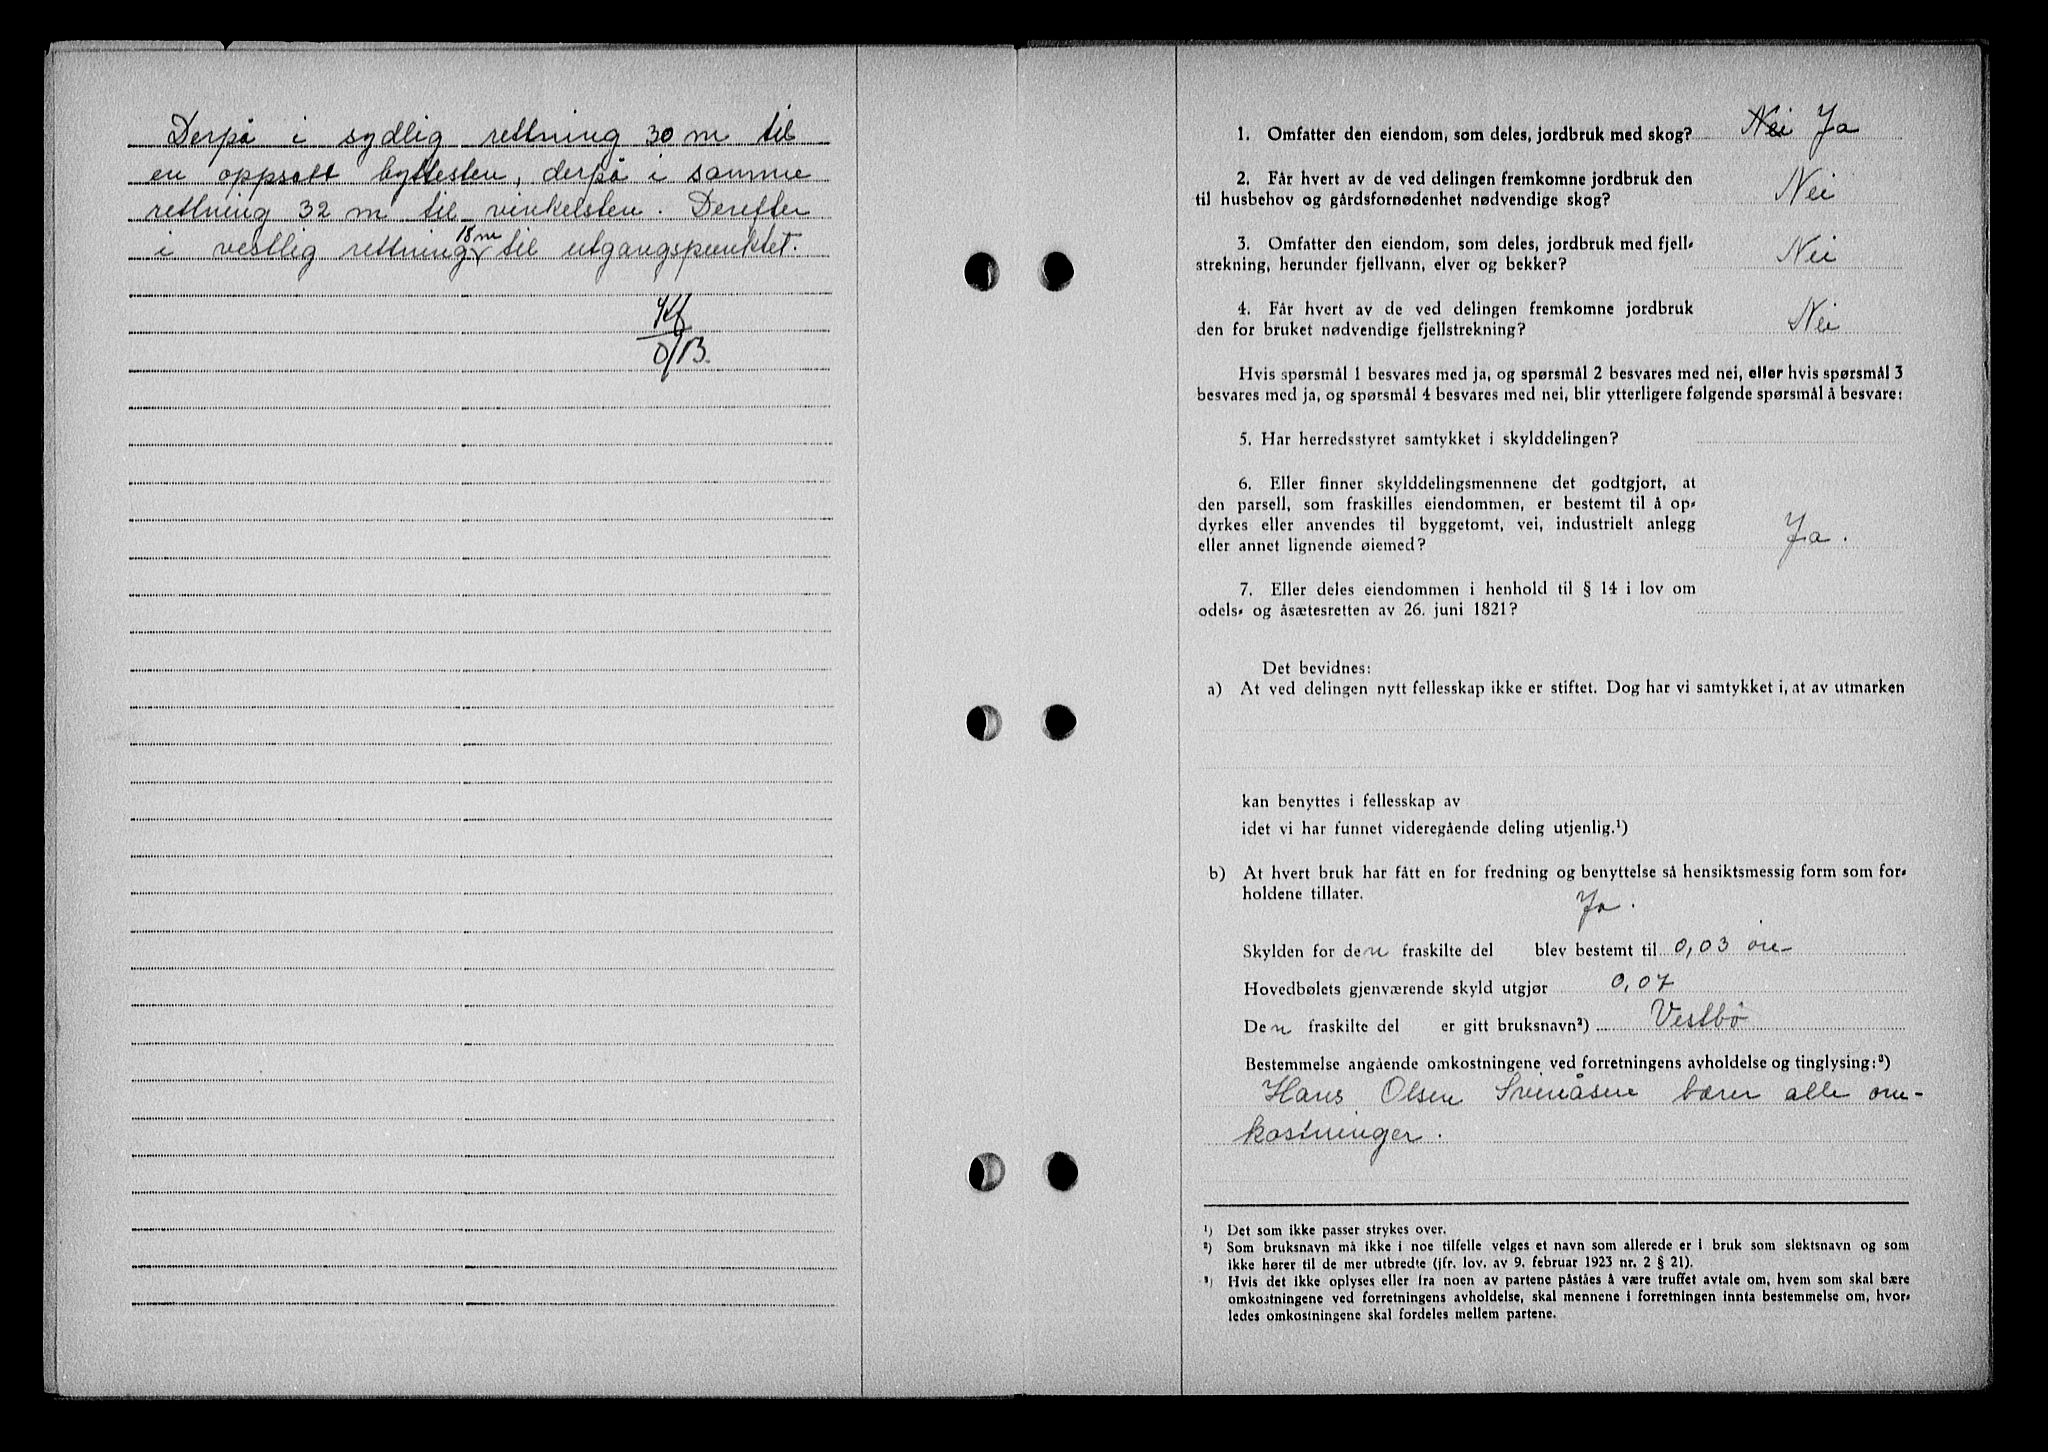 Derpå i sydlig rettning 30 m til
en oppsatt byttesten, derpå i samme
rettning 32 m til vinkelsten. Derefter
i vestlig rettning 18 m til utgangspunktet.
1. Omfatter den eiendom, som deles, jordbruk med skog? Nei Ja
2. Får hvert av de ved delingen fremkomne jordbruk den
til husbehov og gårdsfornødenhet nødvendige skog? Nei
3. Omfatter den eiendom, som deles, jordbruk med fjell-
strekning, herunder fjellvann, elver og bekker? Nei
4. Får hvert av de ved delingen fremkomne jordbruk
den for bruket nødvendige fjellstrekning? Nei
Hvis spørsmål 1 besvares med ja, og spørsmål 2 besvares med nei, eller hvis spørsmål 3
besvares med ja, og spørsmål 4 besvares med nei, blir ytterligere følgende spørsmål å besvare:
5. Har herredsstyret samtykket i skylddelingen?
6. Eller finner skylddelingsmennene det godtgjort, at
den parsell, som fraskilles eiendommen, er bestemt til å op-
dyrkes eller anvendes til byggetomt, vei, industrielt anlegg
eller annet lignende øiemed? Ja.
7. Eller deles eiendommen i henhold til § 14 i lov om
odels- og åsætesretten av 26. juni 1821?
Det bevidnes:
a) At ved delingen nytt fellesskap ikke er stiftet. Dog har vi samtykket i, at av utmarken
kan benyttes i fellesskap av
idet vi har funnet videregående deling utjenlig.¹)
b) At hvert bruk har fått en for fredning og benyttelse så hensiktsmessig form som for-
holdene tillater. Ja.
Skylden for den fraskilte del blev bestemt til 0,03 øre
Hovedbølets gjenværende skyld utgjør 0,07
Den fraskilte del er gitt bruksnavn²) Vestbø
Bestemmelse angående omkostningene ved forretningens avholdelse og tinglysing:³)
Hans Olsen Svenåsen bærer alle om-
kostninger.
¹) Det som ikke passer strykes over.
²) Som bruksnavn må ikke i noe tilfelle velges et navn som allerede er i bruk som slektsnavn og som
ikke hører til de mer utbredte (jfr. lov. av 9. februar 1923 nr. 2 § 21).
³) Hvis det ikke oplyses eller fra noen av partene påståes å være truffet avtale om, hvem som skal bære
omkostningene ved forretningens avholdelse, skal mennene i forretningen innta bestemmelse om, hvor-
ledes omkostningene skal fordeles mellem partene.